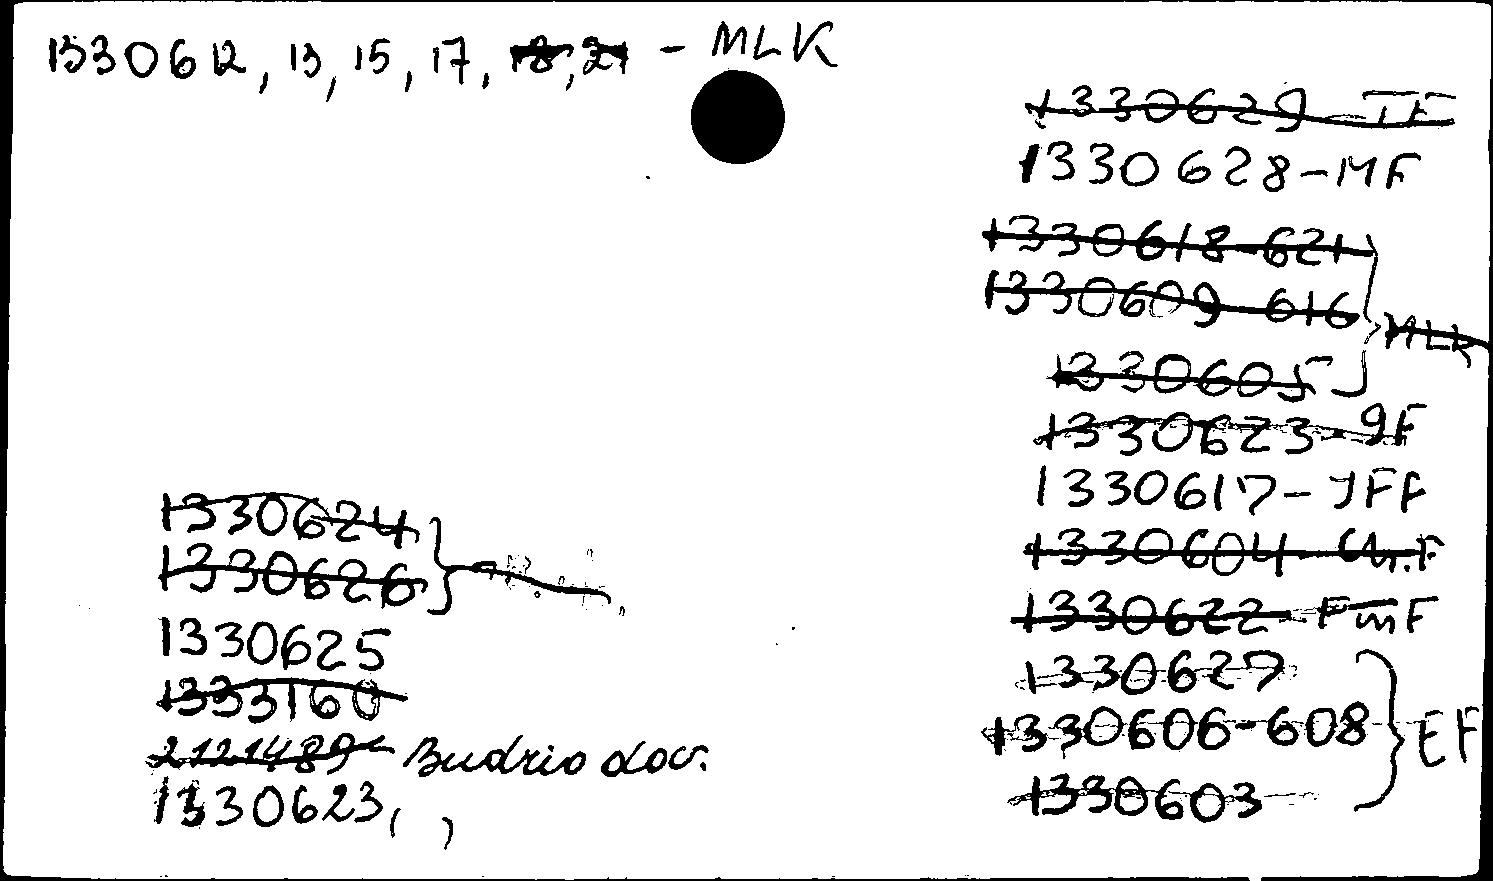 1330612, 13, 15, 17, 18, 21 - MLK
1330629 - JF
1330628 - MF
1330618-621
1330609-616
MLK
1330605
1330623 - JF
1330617 - JFF
1330604 - Ch.F
1330622 - FmF
1330627
1330606-608
EF
1330603
1330624
1330626
1330625
1333160
2121489 Budrio doc.
1330623, ( )